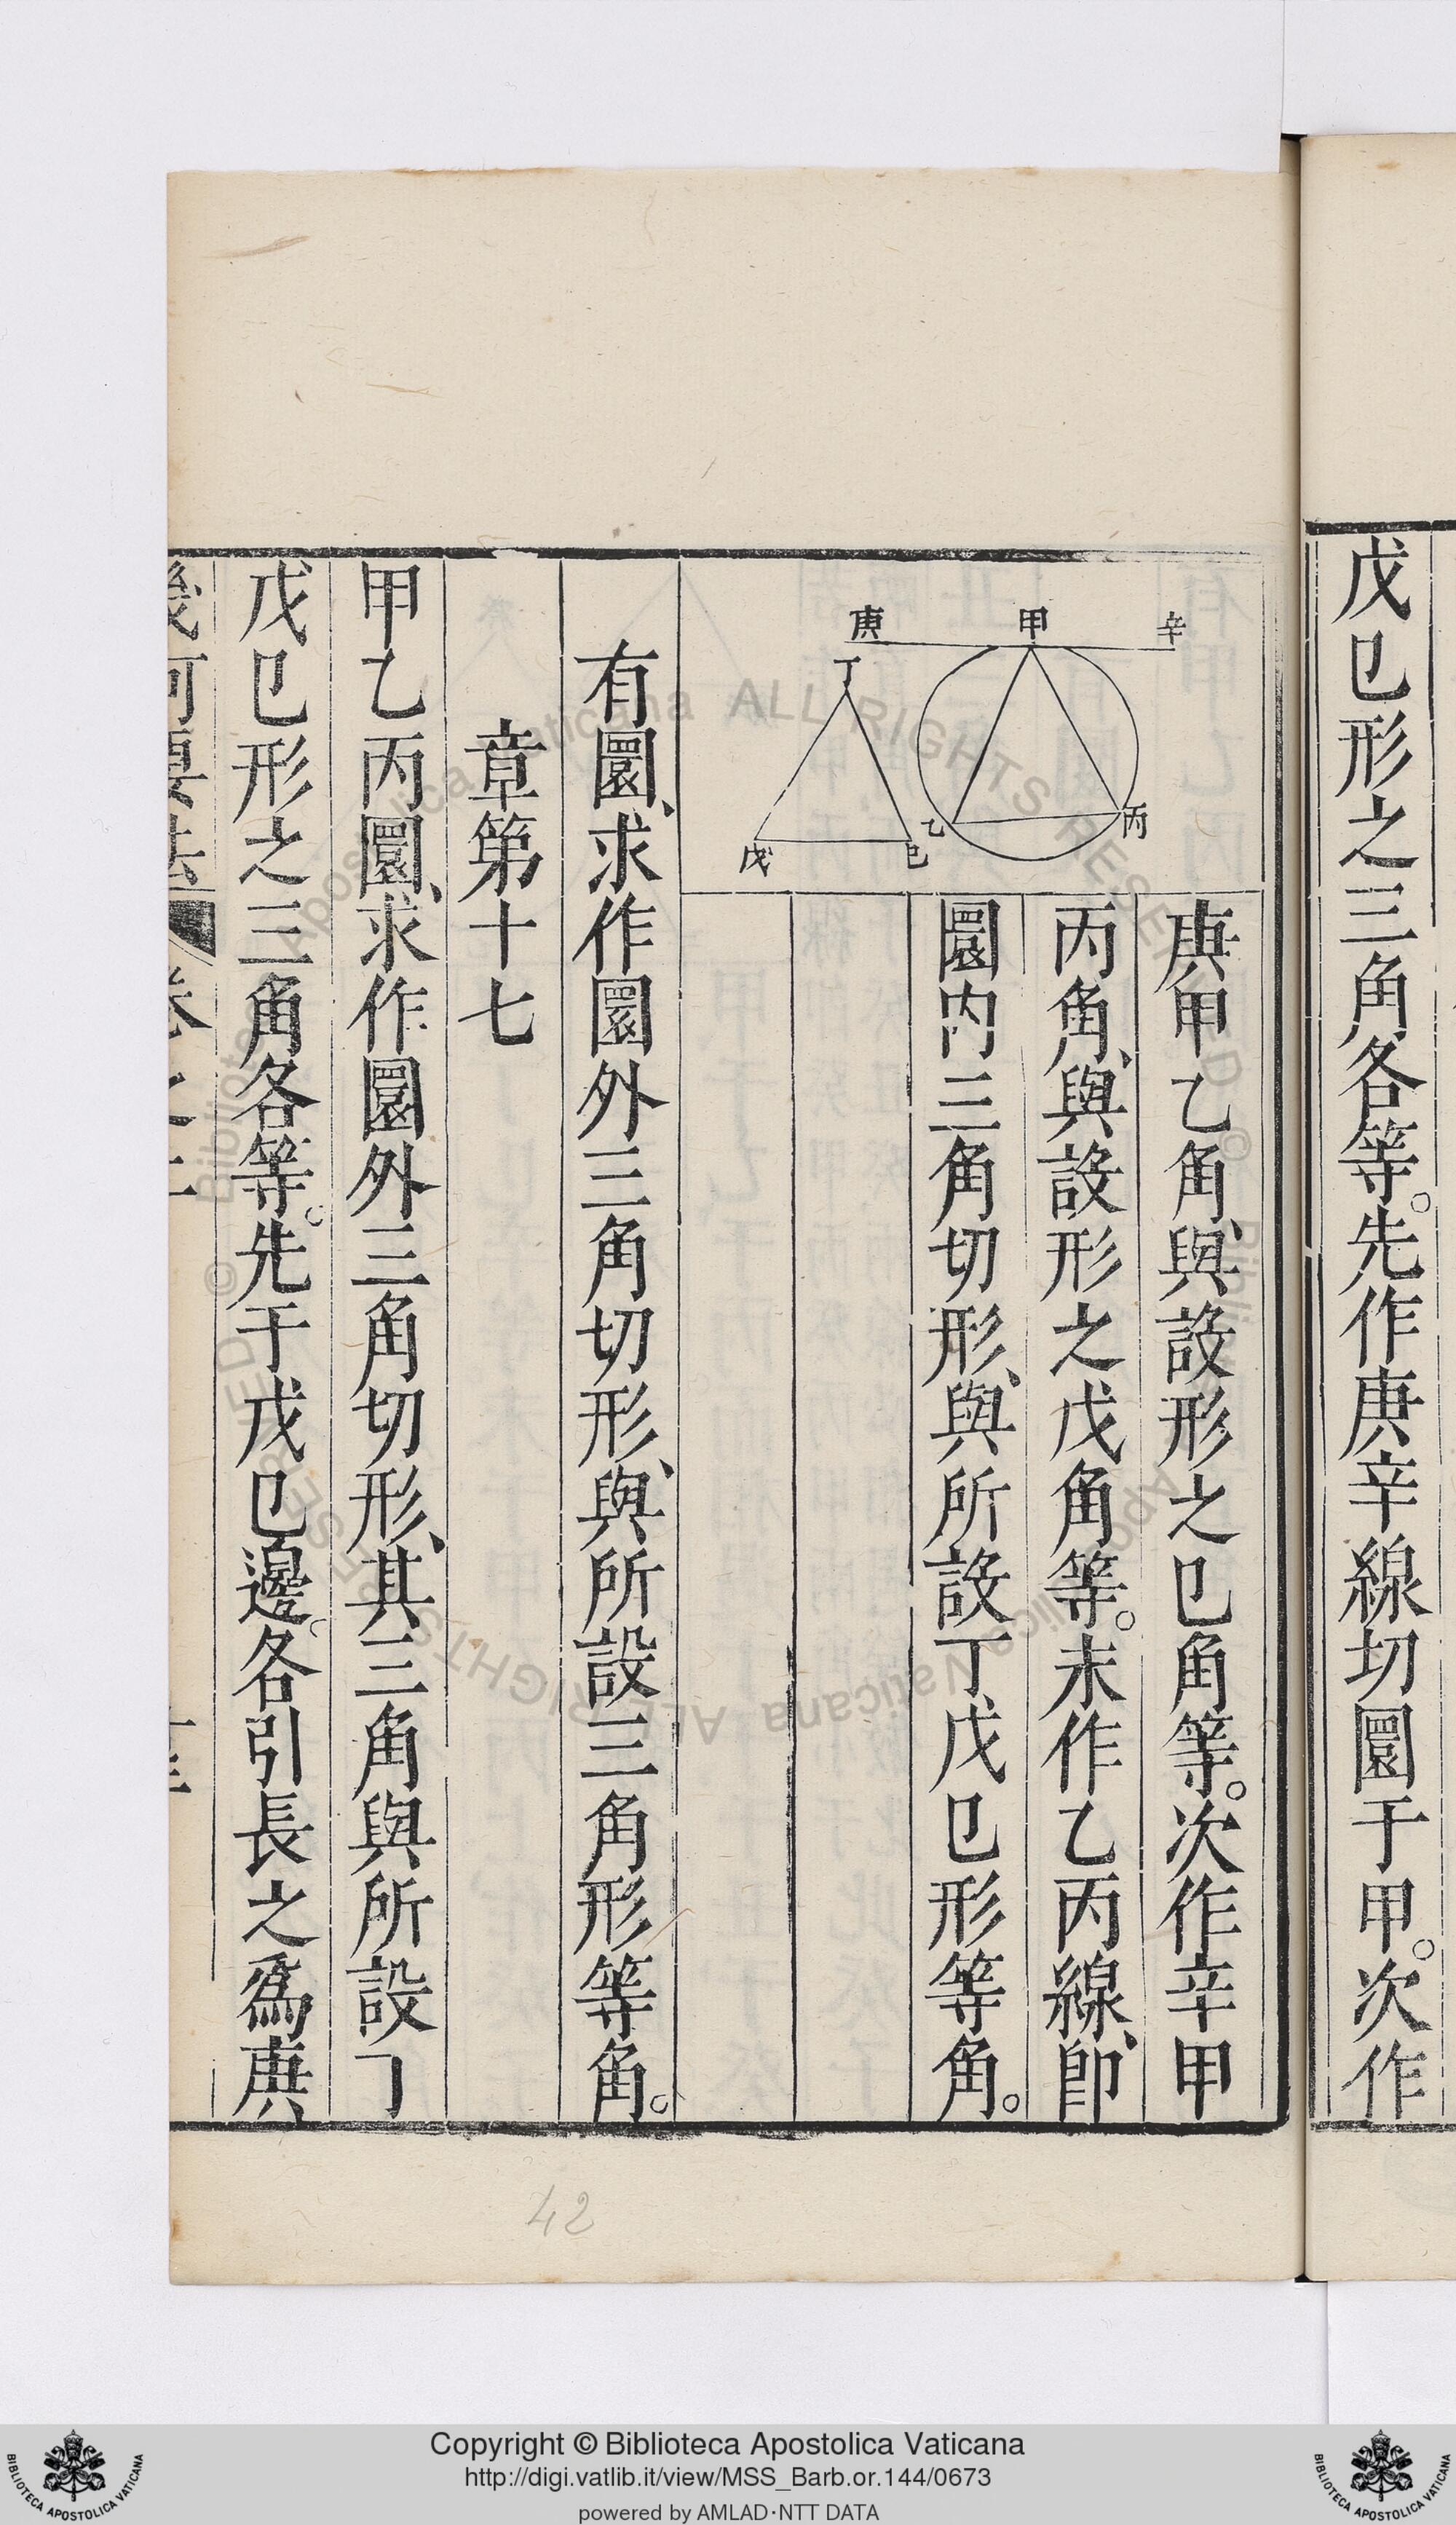 戊巳形之三角各等。先作庚辛線切圜于甲。次作
庚 甲 辛
丁
乙 丙
戊 巳
庚甲乙角、與設形之巳角等。次作辛甲
丙角、與設形之戊角等。末作乙丙線、即
圜内三角切形、與所設丁戊巳形等角。
有圜、求作圜外三角切形、與所設三角形等角。
章第十七
甲乙丙圜、求作圜外三角切形、其三角與所設丁
戊巳形之三角各等。先于戊巳邊。各引長之爲庚
幾何要法 卷之三
42
Copyright © Biblioteca Apostolica Vaticana
http://digi.vatlib.it/view/MSS_Barb.or.144/0673
powered by AMLAD·NTT DATA
BIBLIOTECA APOSTOLICA VATICANA
BIBLIOTECA APOSTOLICA VATICANA